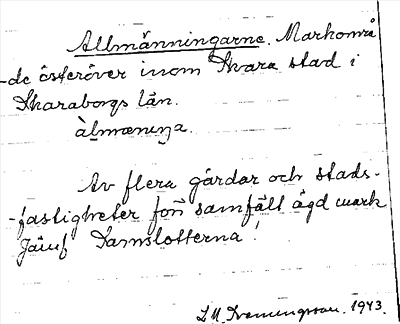 Allmänningarne. Markområ
-de österöver inom Skara stad i
Skaraborgs län.
àlmæniŋa.
Av flera gårdar och stads-
-fastigheter förr samfällt ägd mark
Jämf Tamslotterna!
1943.